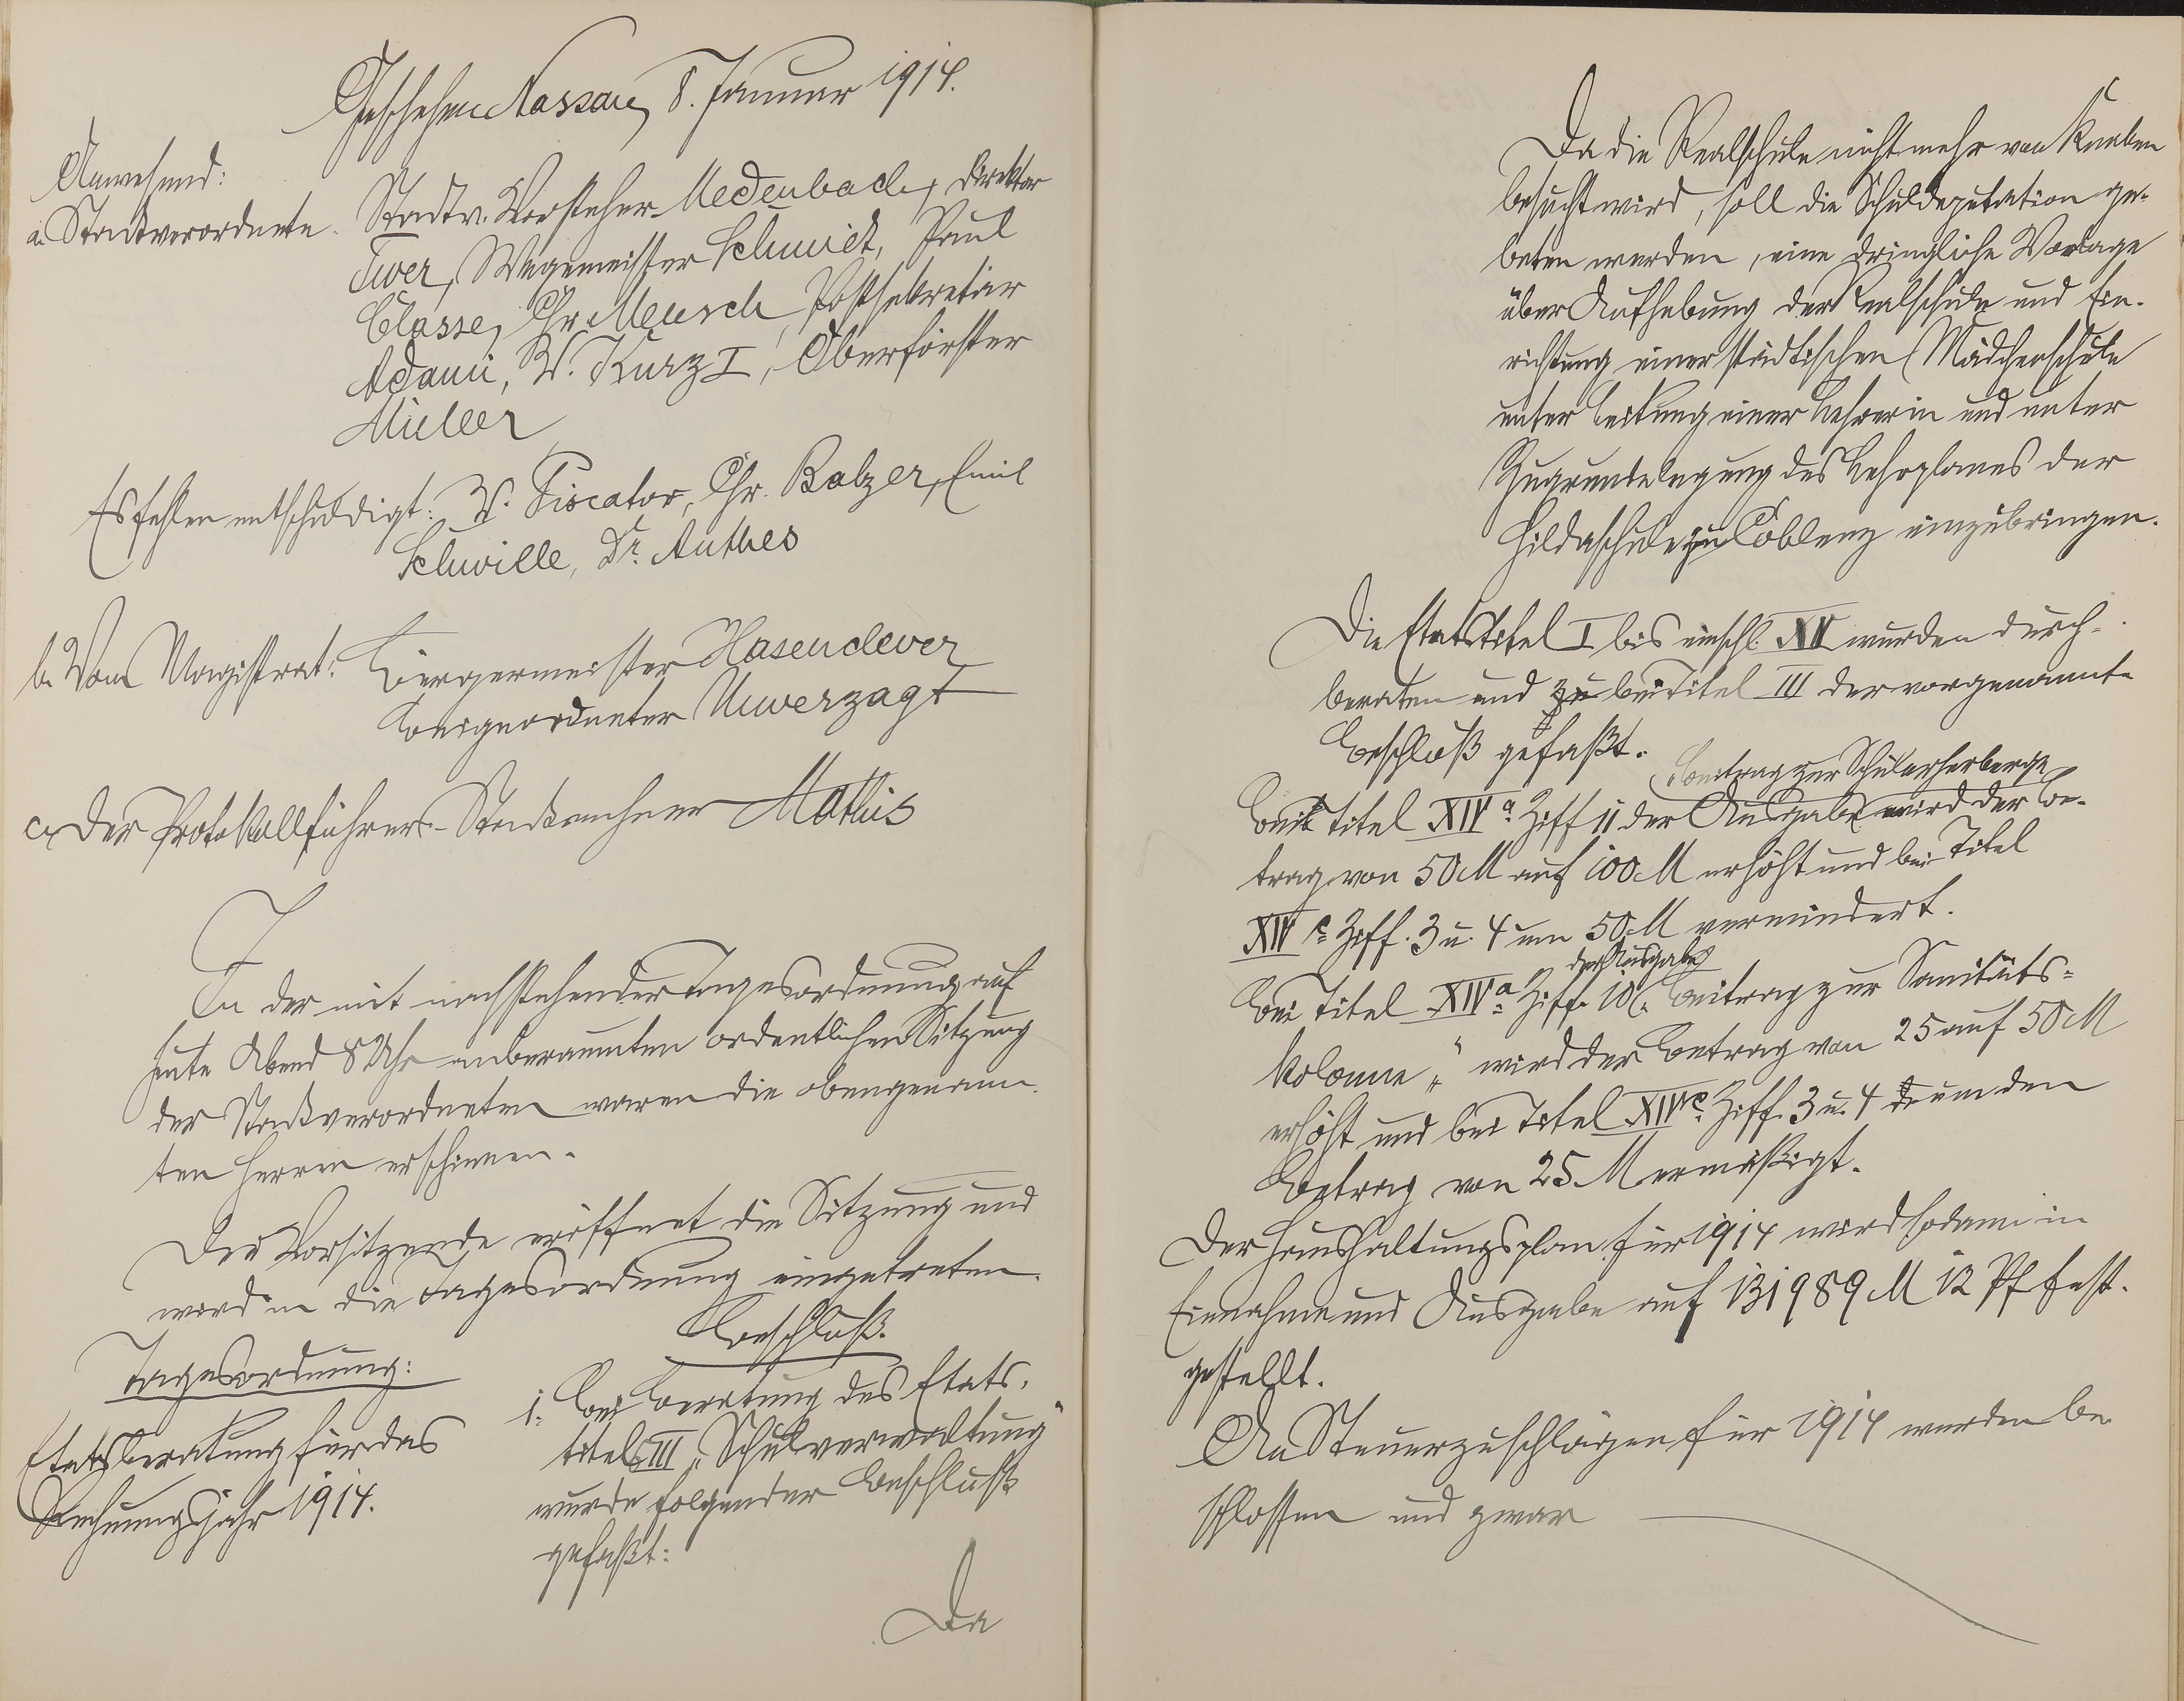 Geschehen Nassau, 8. Januar 1914.
Anwesend:
a. Stadtverordnete. Stadtv. Vorsteher Medenbach, Direktor
Twer, Wegemeister Schmidt, Paul
Classe, Chr. Meusch, Postsekretär
Adami, W. Kurz I, Oberförster
Müller
Es fehlen entschuldigt: W. Piscator, Chr. Balzer, Emil
Schwille, Dr. Anthes
b. Vom Magistrat: Bürgermeister Hasenclever
Beigeordneter Unverzagt
c. Der Protokollführer: Stadtrechner Mathis
In der mit nachstehender Tagesordnung auf
heute Abend 8 Uhr anberaumten ordentlichen Sitzung
der Stadtverordneten waren die obengenann-
ten Herren erschienen.
Der Vorsitzende eröffnet die Sitzung und
wird in die Tagesordnung eingetreten.
Tagesordnung:
Etatsberatung für das
Rechnungsjahr 1914.
Beschluß.
1. Bei Beratung des Etats-
titels III „Schulverwaltung“
wurde folgender Beschluß
gefaßt:
Da
Da die Realschule nicht mehr von Knaben
besucht wird, soll die Schuldeputation ge-
beten werden, eine dringliche Vorlage
über Aufhebung der Realschule und Ein-
richtung einer städtischen Mädchenschule
unter Leitung einer Lehrerin und unter
Zugrundelegung des Lehrplanes der
Hildaschule zu Coblenz einzubringen.
Die Etatstitel I bis einschl. XV wurden durch-
beraten und zu bei Titel III der vorgenannte
Beschluß gefaßt.
„Beitrag zur Schülerherberge“
Bei Titel XIV a Ziff 11 der Ausgabe wird der Be-
trag von 50 M auf 100 M erhöht und bei Titel
XIV c Ziff. 3 u. 4 um 50 M vermindert.
der Ausgabe
Bei Titel XIV a Ziff. 10 „Beitrag zur Sanitäts-
kolonne“ wird der Betrag von 25 auf 50 M
erhöht und bei Titel XIV c Ziff. 3 u. 4 um den
Betrag von 25 M ermäßigt.
Der Haushaltungsplan für 1914 wird sodann in
Einnahme und Ausgabe auf 131989 M 12 Pf fest-
gestellt.
An Steuerzuschlägen für 1914 wurden be-
schlossen und zwar